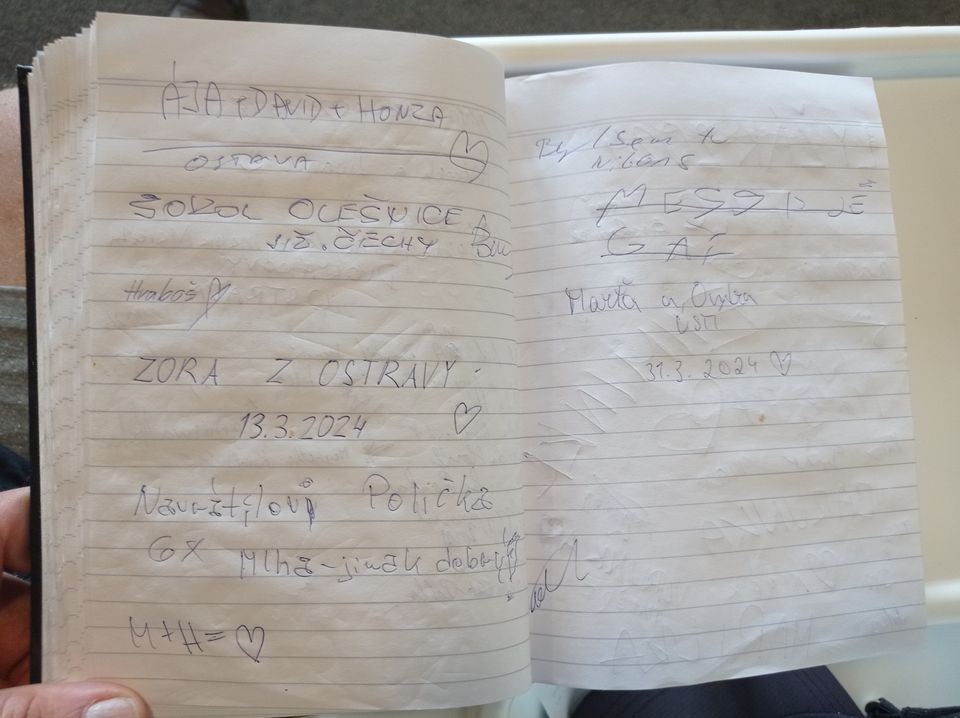 ÁJA + DAVID + HONZA
OSTRAVA
SOKOL OLEŠNICE
JIŽ. ČECHY
Hraboš
ZORA Z OSTRAVY
13.3.2024
Navrátilovi Polička
6x Mlha - jinak dobrý
M + H =
By l Sem tu
MESSD JE
GAÉ
Marťa a
ÚSTÍ
31.3. 2024